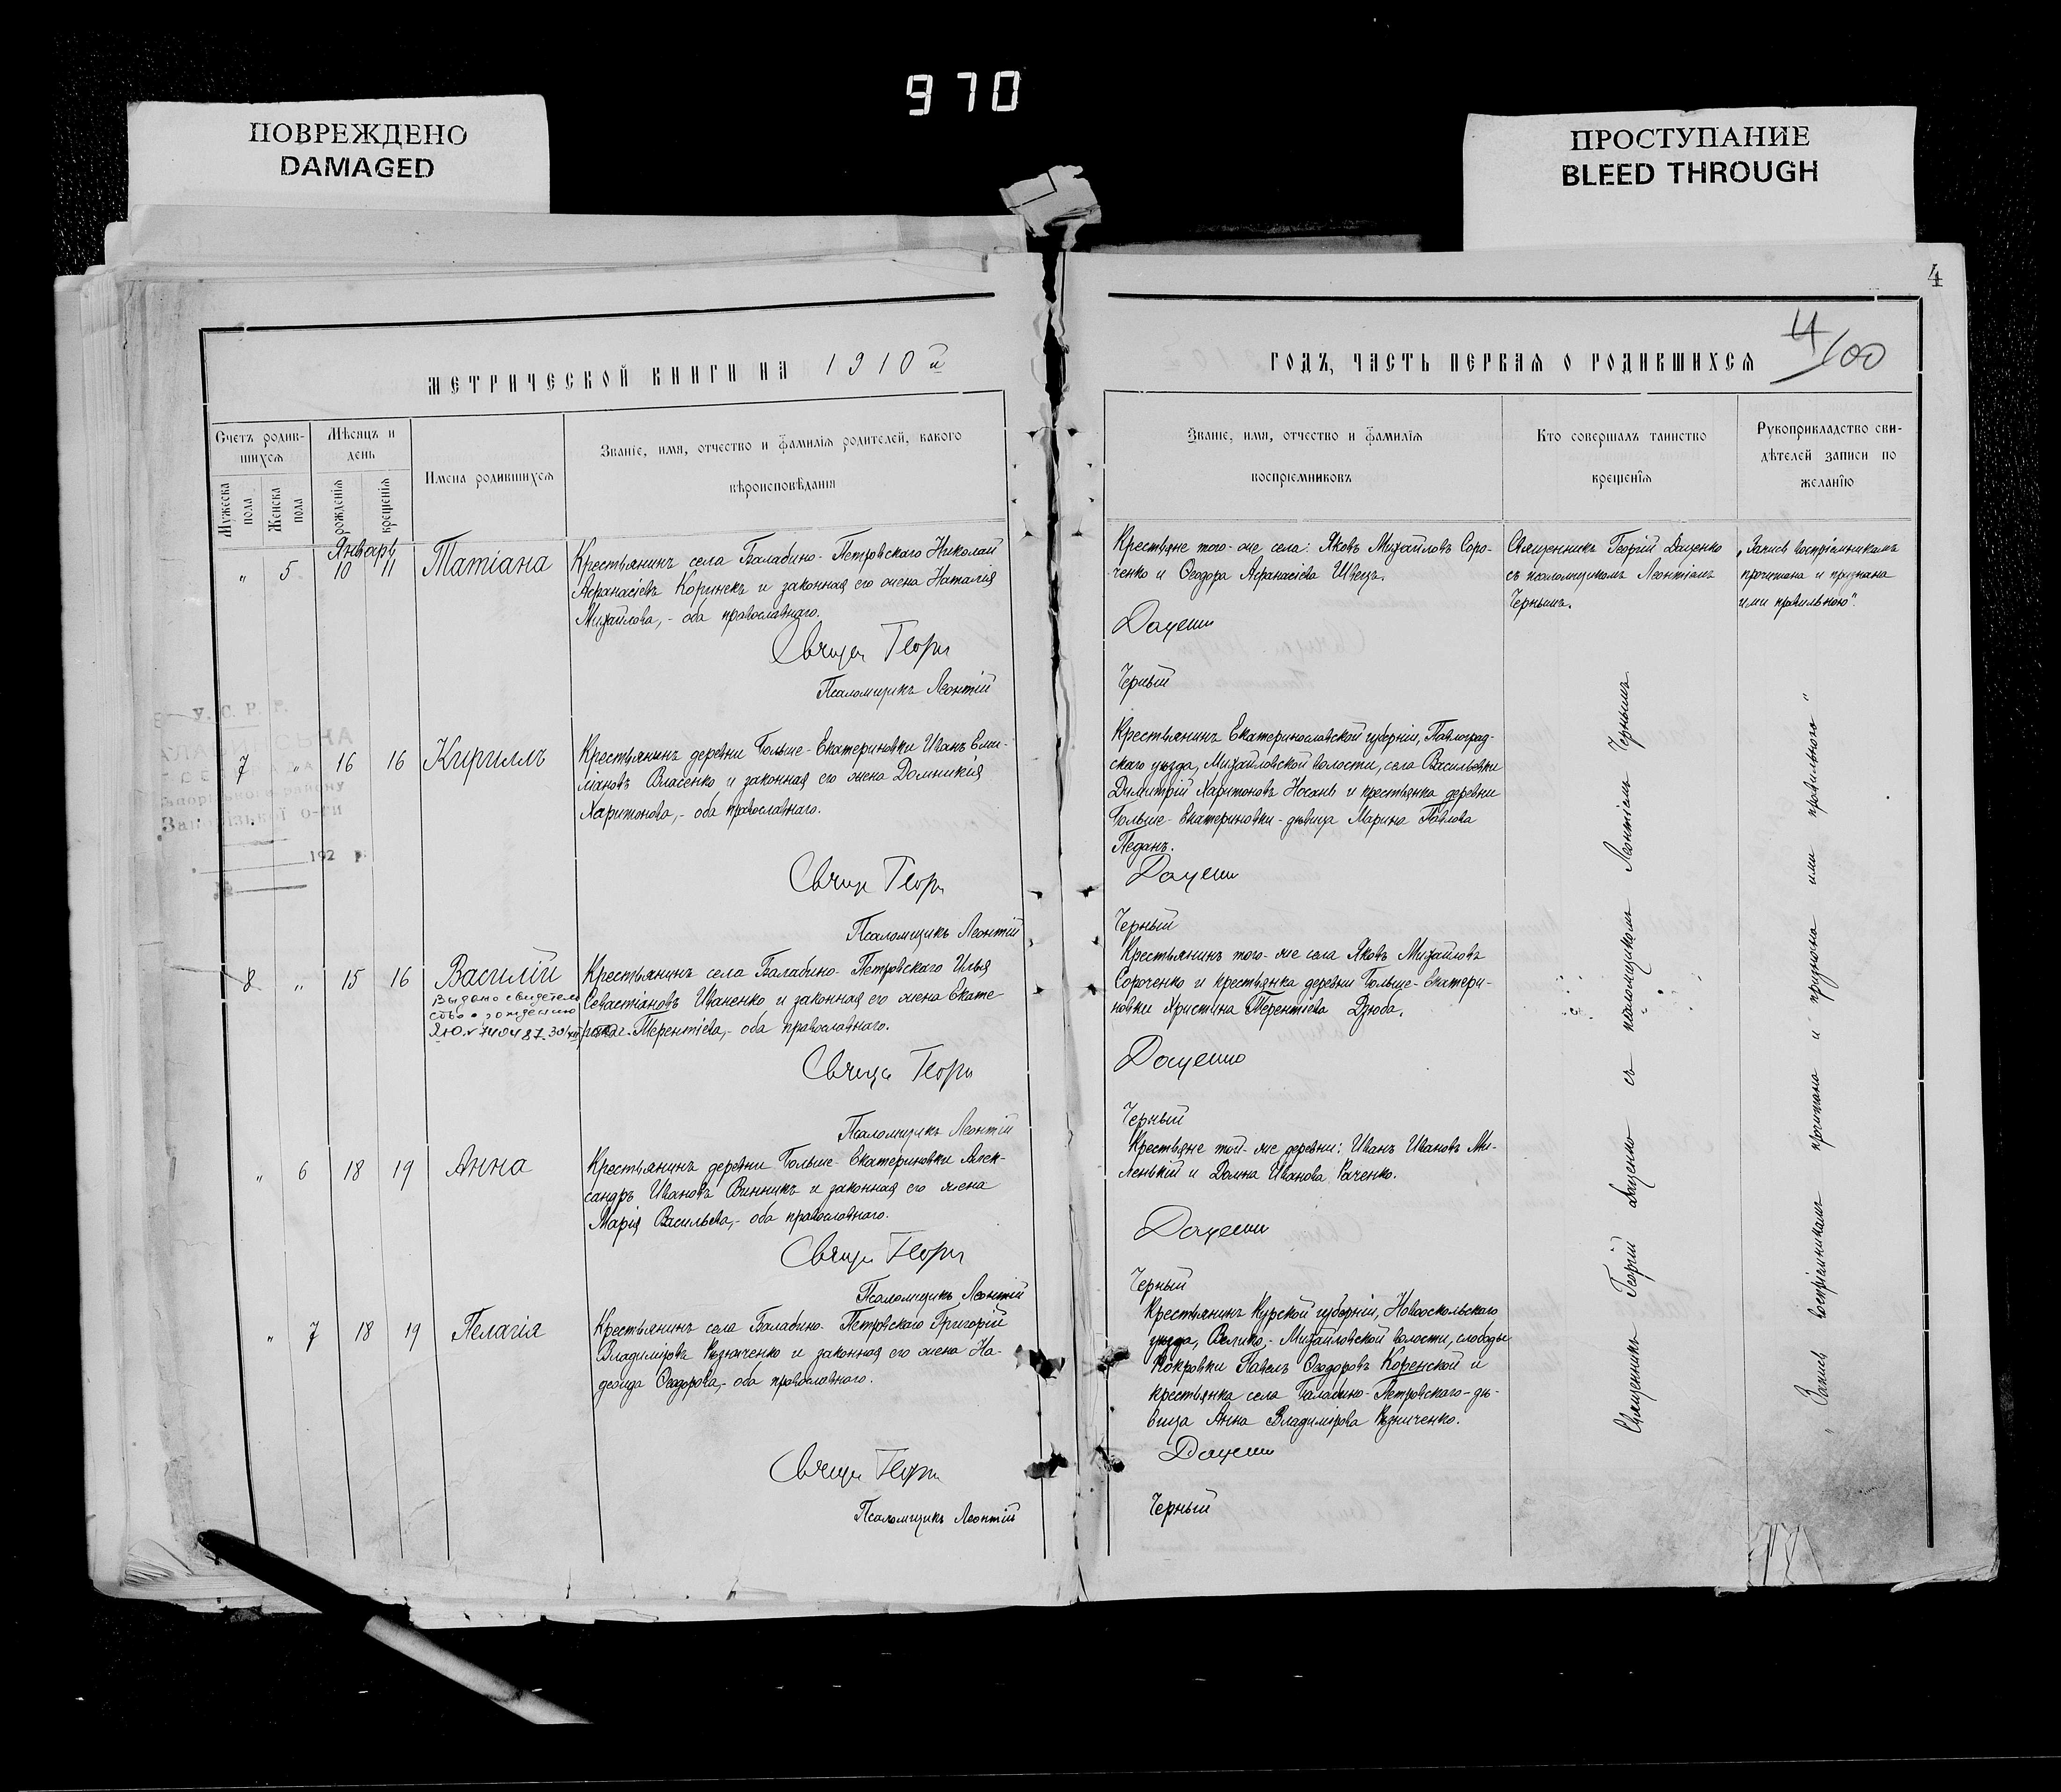 970
ПОВРЕЖДЕНО
DAMAGED
ПРОСТУПАНИЕ
BLEED THROUGH
4
МЕТРИЧЕСКОЙ КНИГИ НА 1910й
Счетъ родив-
шихся
Мѣсяцъ и
день
Мужеска
пола
Женска
пола
рожденія
крещенія
Имена родившихся
Званіе, имя, отчество и фамилія родителей, какого
вѣроисповѣданія
Январь
" 5 10 11 Татіана
Крестьянинъ села Балабино-Петровскаго Николай
Афанасіевъ Коринекъ и законная его жена Наталія
Михайлова,- оба православнаго.
Георг
Псаломщикъ Леонтій
У.С.Р.Р.
192 р.
7 " 16 16 Кириллъ
Крестьянинъ деревни Больше-Екатериновки Иванъ Еми-
ліановъ Власенко и законная его жена Домникія
Харитонова,- оба православнаго.
Георг
Псаломщикъ Леонтій
8 " 15 16 Василій
Выдано свидетель
ство о рождению
Крестьянинъ села Балабино-Петровскаго Илья
Севастіановъ Иваненко и законная его жена Екате
Терентіева,- оба православнаго.
Георг
Псаломщикъ Леонтій
" 6 18 19 Анна
Крестьянинъ деревни Больше-Екатериновки Алек-
сандръ Ивановъ Винникъ и законная его жена
Марія Васильева,- оба православнаго.
Георг
Псаломщикъ Леонтій
" 7 18 19 Пелагія
Крестьянинъ села Балабино-Петровскаго Григорій
Владиміровъ Рѣзниченко и законная его жена На-
дежда Ѳеодорова,- оба православнаго.
Георг
Псаломщикъ Леонтій
ГОДЪ, ЧАСТЬ ПЕРВАЯ О РОДИВШИХСЯ
4/100
Званіе, имя, отчество и фамилія
воспріемниковъ
Кто совершалъ таинство
крещенія
Рукоприкладство сви-
дѣтелей записи по
желанію
Крестьяне того-же села: Яковъ Михайловъ Соро-
ченко и Ѳеодора Афанасіева Швецъ.
Даценко
Черный
Священникъ Георгій Даценко
съ псаломщикомъ Леонтіемъ
Чернымъ.
"Запись воспріемниками
прочитана и признана
ими правильною".
Крестьянинъ Екатеринославской губерніи, Павлоград-
скаго уѣзда, Михайловской волости, села Васильевки
Димитрій Харитоновъ Носань и крестьянка деревни
Больше-Екатериновки-дѣвица Марина Павлова
Педанъ.
Даценко
Черный
Крестьянинъ того-же села Яковъ Михайловъ
Сороченко и крестьянка деревни Больше-Екатери-
новки Христина Терентіева Дзюба.
Даценко
Черный
Крестьяне той-же деревни: Иванъ Ивановъ Ми-
ленькій и Домна Иванова Раченко.
Даценко
Черный
Крестьянинъ Курской губерніи, Новооскольскаго
уѣзда, Велико-Михайловской волости, слободы
Покровки Павелъ Ѳеодоровъ Коренской и
крестьянка села Балабино-Петровскаго-дѣ-
вица Анна Владимірова Рѣзниченко.
Даценко
Черный
Священникъ Георгій Даценко съ псаломщикомъ Леонтіемъ Чернымъ
"Запись воспріемниками прочитана и признана ими правильною"